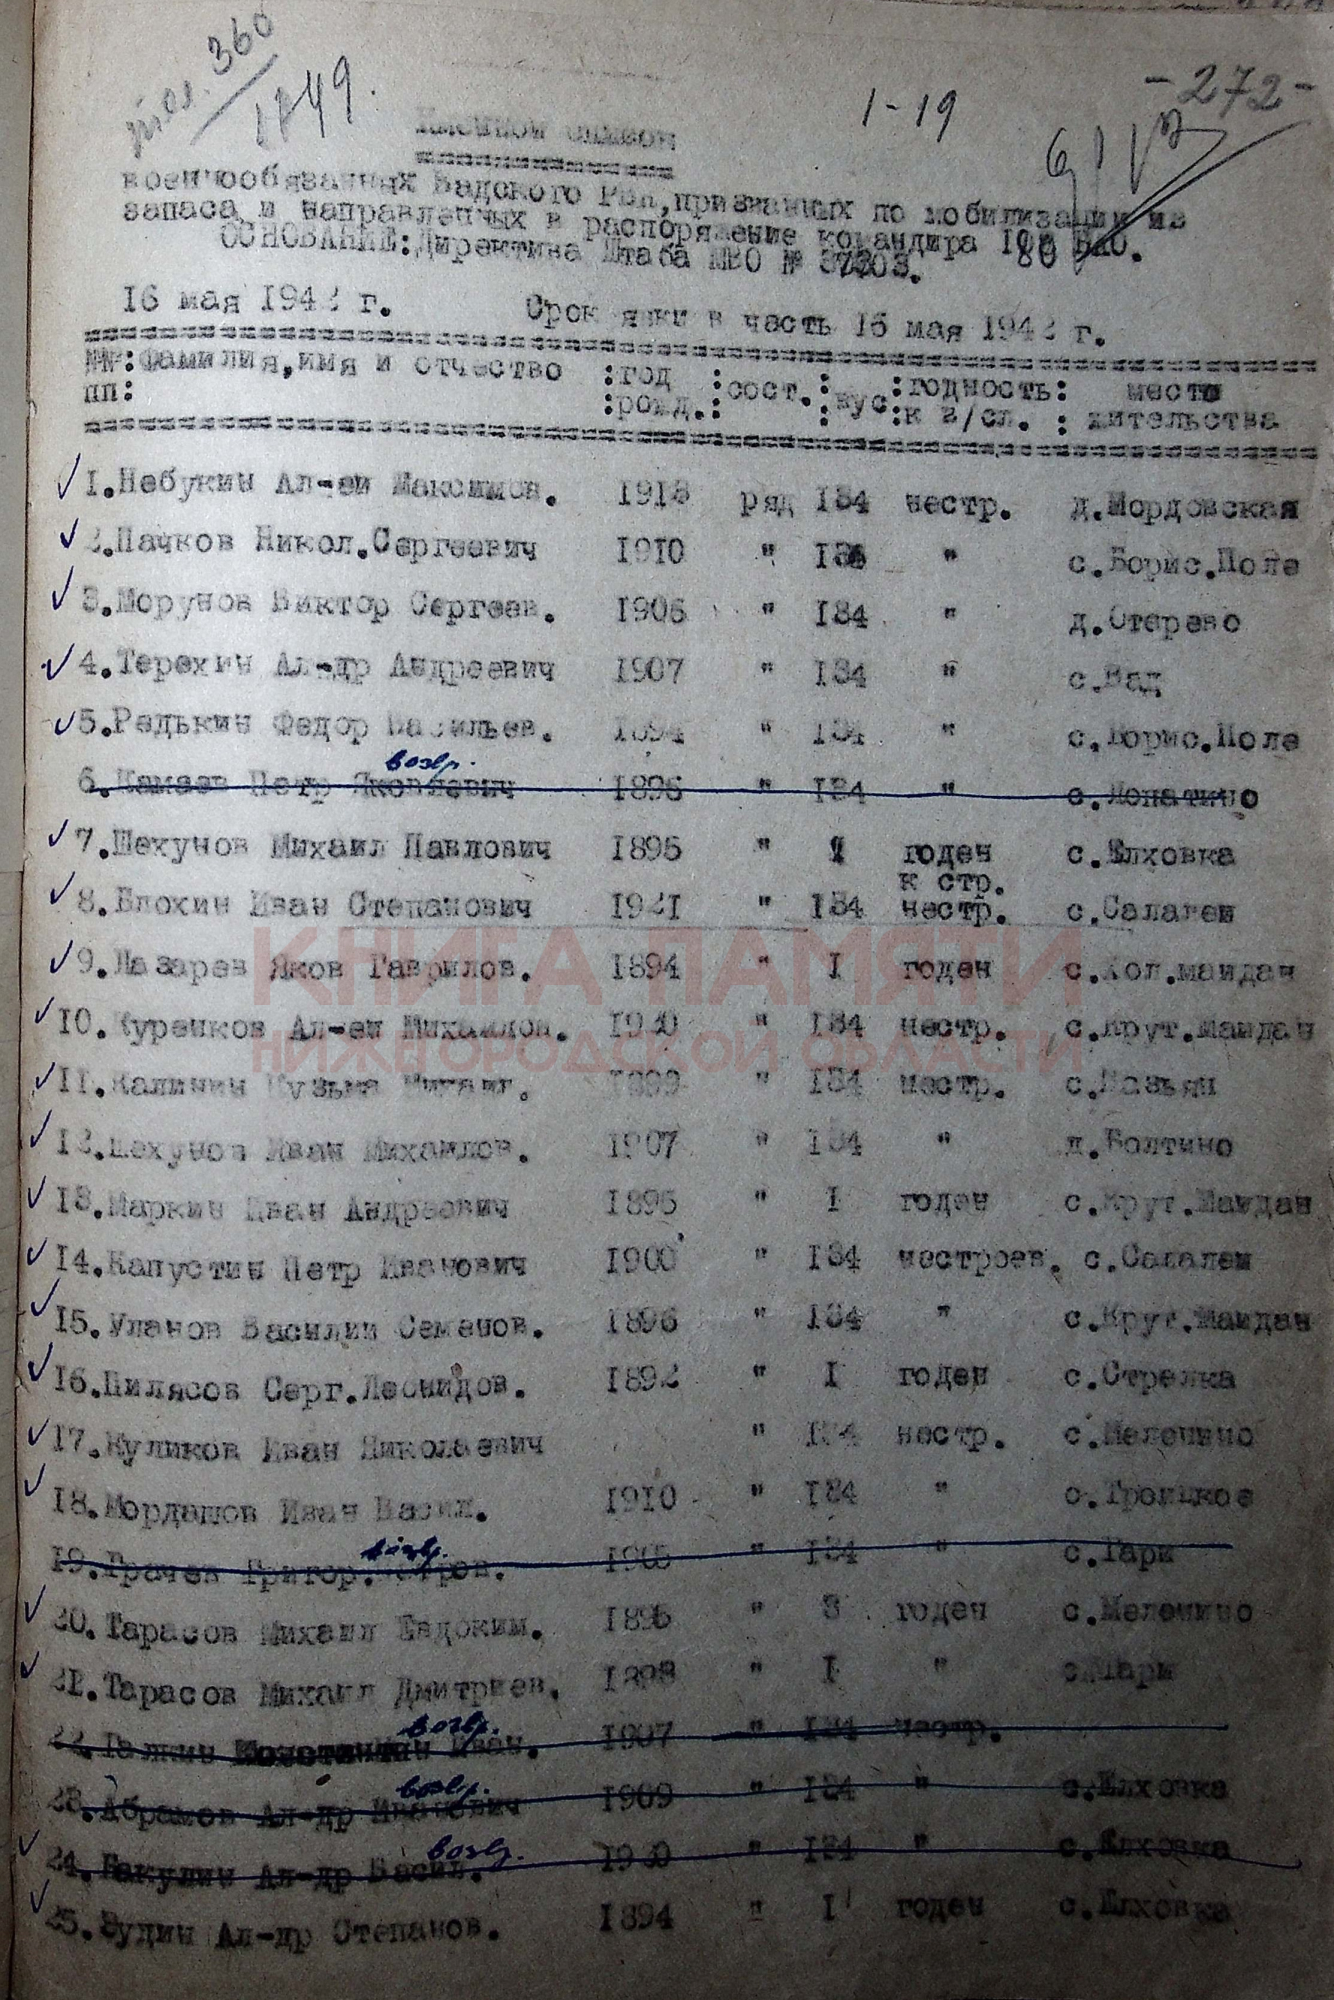 360
1849.
1-19
-272-
Именной список
военнообязанных Вадского Рвк, призванных по мобилизации из
запаса и направленных в распоряжение командира БАО.
ОСНОВАНИЕ: Директива Штаба МВО №
16 мая 1942 г. Срок явки в часть 15 мая 1942 г.
№№: Фамилия, имя и отчество :год :сост. : вус :годность: место
пп: :рожд.: : :к в/сл. : жительства
1. Небукин Ал-ей Максимов. 1918 ряд 134 нестр. д.Мордовская
2. Пачков Никол.Сергеевич 1910 " 134 " с.Борис.Поле
3. Морунов Виктор Сергеев. 1906 " 134 " д.Отерево
4. Терехин Ал-др Андреевич 1907 " 134 " с.Вад
5. Редькин Федор Васильев. 1894 " 134 " с.Борис.Поле
возвр.
6. Камаев Петр Яковлевич 1896 " 134 " с.Лопатино
7. Шехунов Михаил Павлович 1895 " 1 годен с.Елховка
к стр.
8. Блохин Иван Степанович 1921 " 134 нестр. с.Салалей
КНИГА ПАМЯТИ
9. Лазарев Яков Гаврилов. 1894 " I годен с.Кол.майдан
10. Куренков Ал-ей Михайлов. 1920 " 134 нестр. с.Крут.Майдан
НИЖЕГОРОДСКОЙ ОБЛАСТИ
11. Калинин Кузьма 1899 " 134 нестр.
12. Шехунов Иван Михайлов. 1907 " 134 " д.Болтино
13. Маркин Иван Андреевич 1895 " I годен с.Крут.Майдан
14. Капустин Петр Иванович 1900 " 134 нестроев. с.Салалей
15. Уланов Василий Семенов. 1896 " 134 " с.Крут.Майдан
16. Пилясов Серг.Леонидов. 1892 " I годен с.Стрелка
17. Куликов Иван Николаевич " 134 нестр. с.Мелечино
18. Морданов Иван Васил. 1910 " 134 " с.Троицкое
возвр.
19. Грачев Григор. 1905 " 134 " с.Гари
20. Тарасов Михаил Евдоким. 1895 " 3 годен с.Мелечино
21. Тарасов Михаил Дмитриев. 1898 " I " с.Гари
возвр.
22. Галкин Константин Иван. 1907 " 134 нестр.
возвр.
23. Абрамов Ал-др Иванович 1909 " 134 " с.Елховка
возвр.
24. Бакулин Ал-др Васил. 1920 " 134 " с.Елховка
25. Зудин Ал-др Степанов. 1894 " I годен с.Елховка